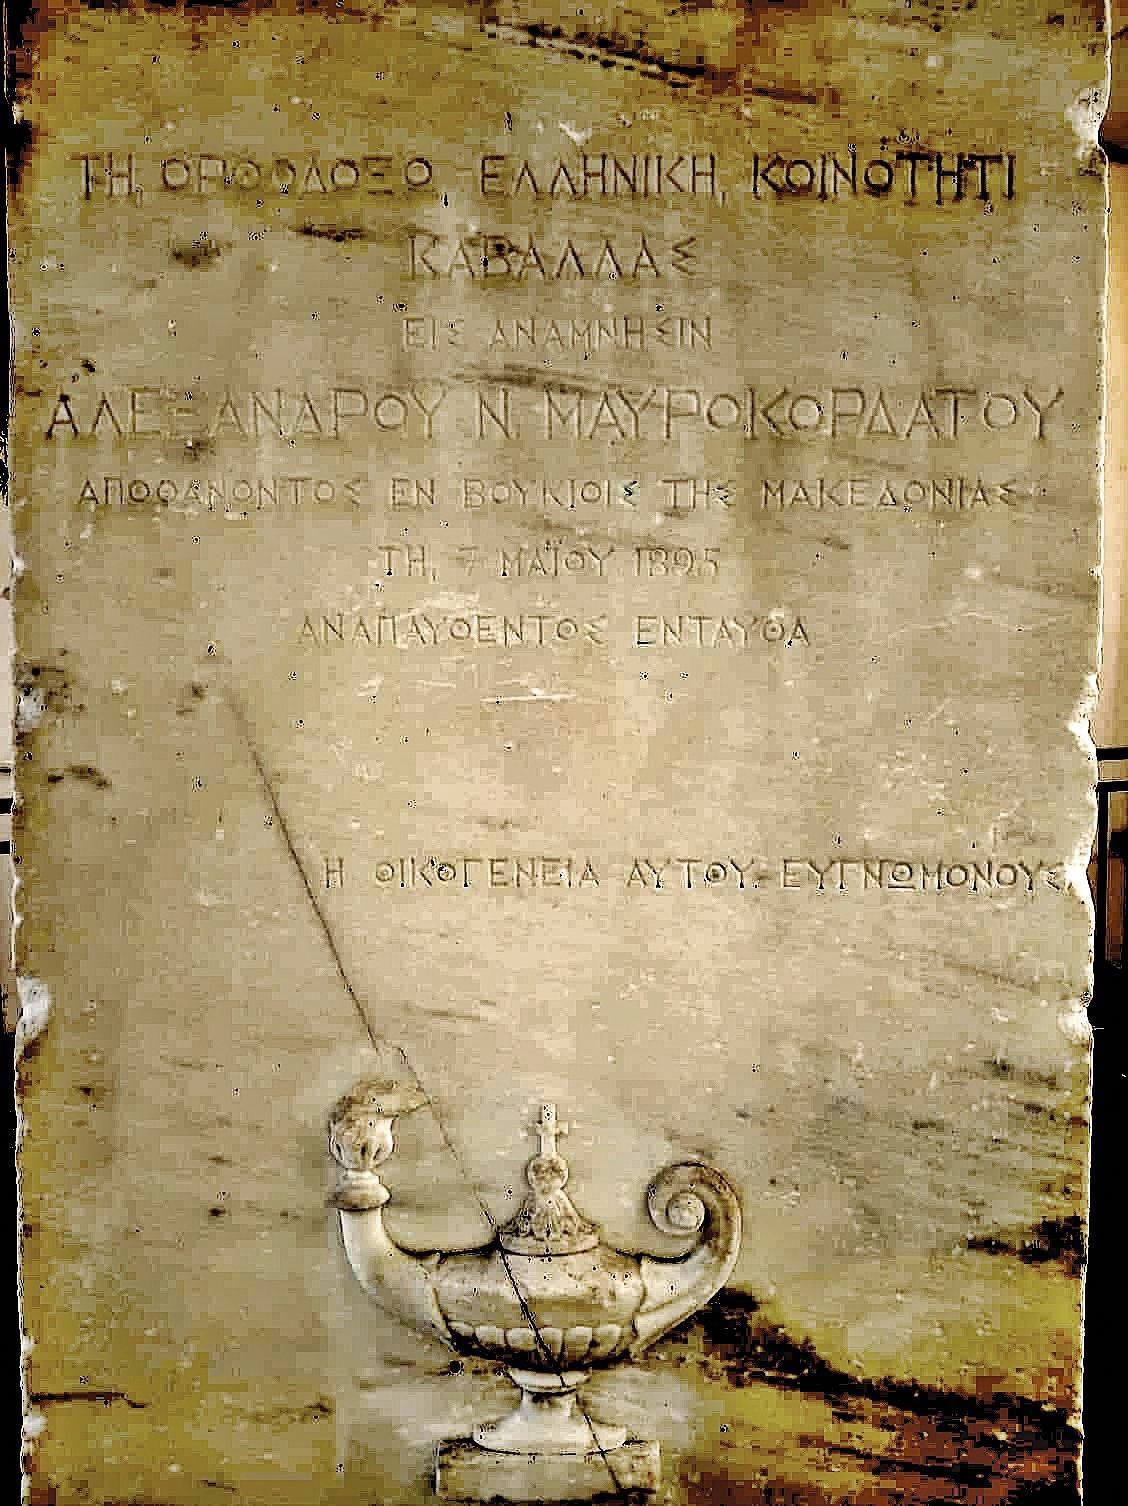 ΤΗ, ΟΡΘΟΔΟΞΩ, ΕΛΛΗΝΙΚΗ, ΚΟΙΝΟΤΗΤΙ
ΚΑΒΑΛΛΑΣ
ΕΙΣ ΑΝΑΜΝΗΣΙΝ
ΑΛΕΞΑΝΔΡΟΥ Ν. ΜΑΥΡΟΚΟΡΔΑΤΟΥ
ΑΠΟΘΑΝΟΝΤΟΣ ΕΝ ΒΟΥΚΙΟΙΣ ΤΗΣ ΜΑΚΕΔΟΝΙΑΣ
ΤΗ, 7 ΜΑΪΟΥ 1895
ΑΝΑΠΑΥΘΕΝΤΟΣ ΕΝΤΑΥΘΑ
Η ΟΙΚΟΓΕΝΕΙΑ ΑΥΤΟΥ ΕΥΓΝΩΜΟΝΟΥΣΑ